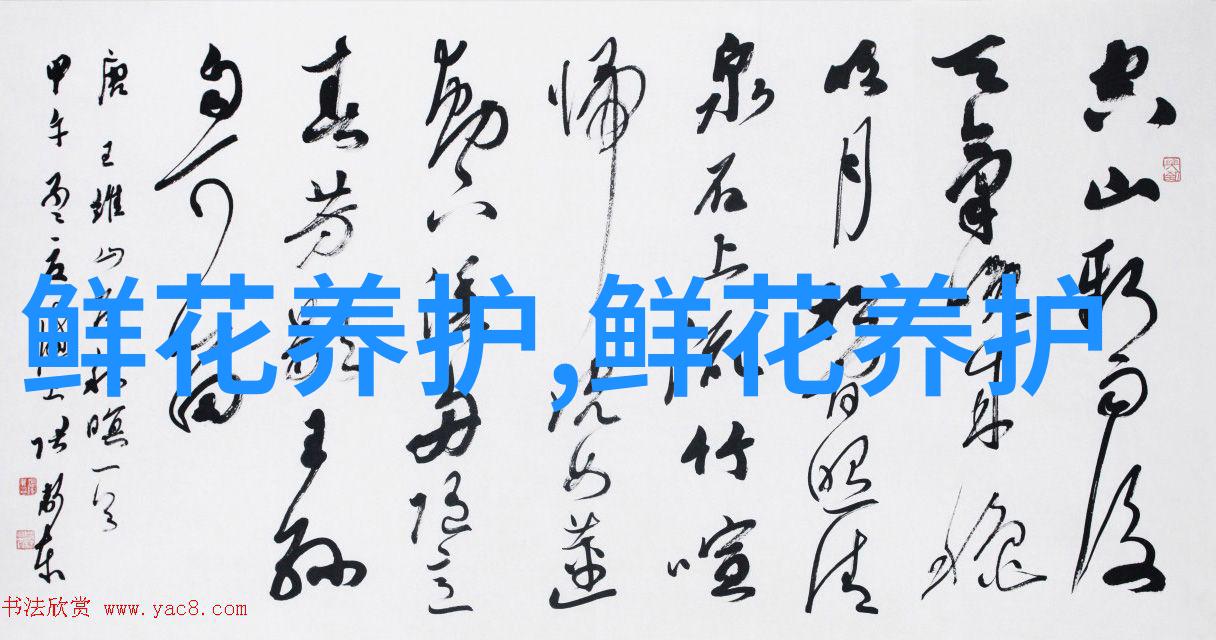 空山新雨後
天氣晚来秋
明月松间照清
泉石上流竹喧
帰浣女蓮
動下渔舟随意
春芳歇王孙
自可留
唐王維山居秋暝一首
甲午孟夏
鲜花养护,鲜花养护
书法欣赏 www.yac8.com